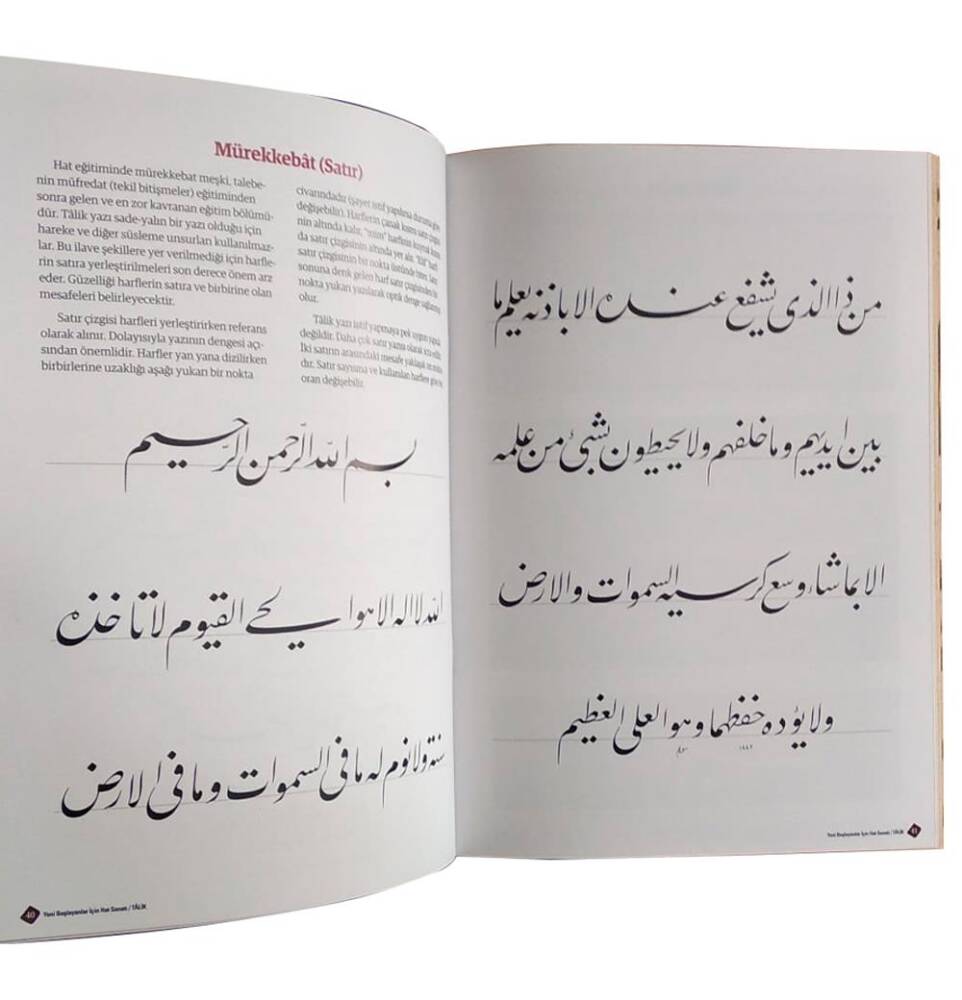 Mürekkebât (Satır)
Hat eğitiminde mürekkebat meşki, talebe-
nin müfredat (tekil bitişmeler) eğitiminden
sonra gelen ve en zor kavranan eğitim bölümü-
dür. Tâlik yazı sade-yalın bir yazı olduğu için
hareke ve diğer süsleme unsurları kullanılmaz-
lar. Bu ilave şekillere yer verilmediği için harfle-
rin satıra yerleştirilmeleri son derece önem arz
eder. Güzelliği harflerin satıra ve birbirine olan
mesafeleri belirleyecektir.
Satır çizgisi harfleri yerleştirirken referans
olarak alınır. Dolayısıyla yazının dengesi açı-
sından önemlidir. Harfler yan yana dizilirken
birbirlerine uzaklığı aşağı yukarı bir nokta
civarındadır (şayet istif yapılırsa duruma göre
değişebilir). Harflerin çanak kısmı satır çizgisi-
nin altında kalır, "mim" harfinin kuyruk kısmı
da satır çizgisinin altında yer alır. "Elif" harfi
satır çizgisinin bir nokta üstünde biter. Satır
sonuna denk gelen harf satır çizgisinden bir
nokta yukarı yazılarak optik denge sağlanmış
olur.
Tâlik yazı istif yapmaya pek uygun yapıda
değildir. Daha çok satır yazısı olarak icra edilir.
İki satırın arasındaki mesafe yaklaşık
dır. Satır sayısına ve kullanılan harflere göre bu
oran değişebilir.
بسم الله الرّحمن الرّحيم
الله لا اله الا هو الحي القيوم لا تاخذه
سنة ولا نوم له ما فى السموات وما فى الارض
40 Yeni Başlayanlar İçin Hat Sanatı / TÂLİK
من ذا الذى يشفع عنده الا باذنه يعلم ما
بين ايديهم وما خلفهم ولا يحيطون بشىء من علمه
الا بما شاء وسع كرسيه السموات والارض
ولا يؤده حفظهما وهو العلى العظيم
Yeni Başlayanlar İçin Hat Sanatı / TÂLİK 41